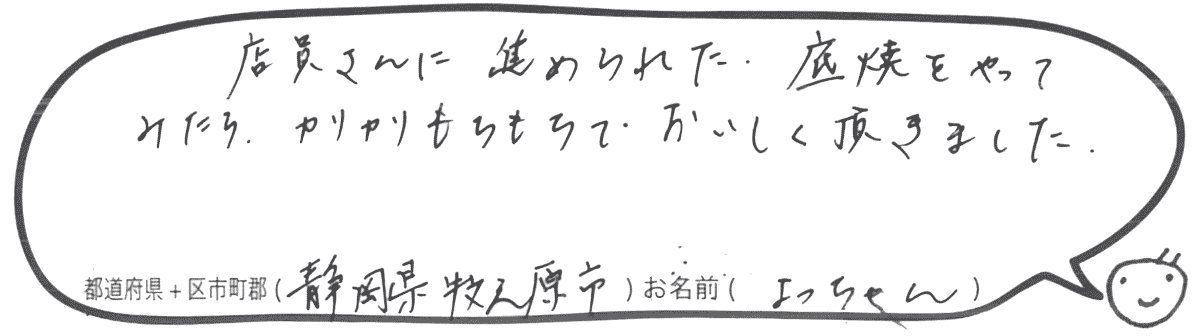 店員さんに進められた、底焼をやって
みたら、カリカリもちもちで、おいしく頂きました。
都道府県+区市町郡(静岡県牧之原市)お名前(よっちゃん)